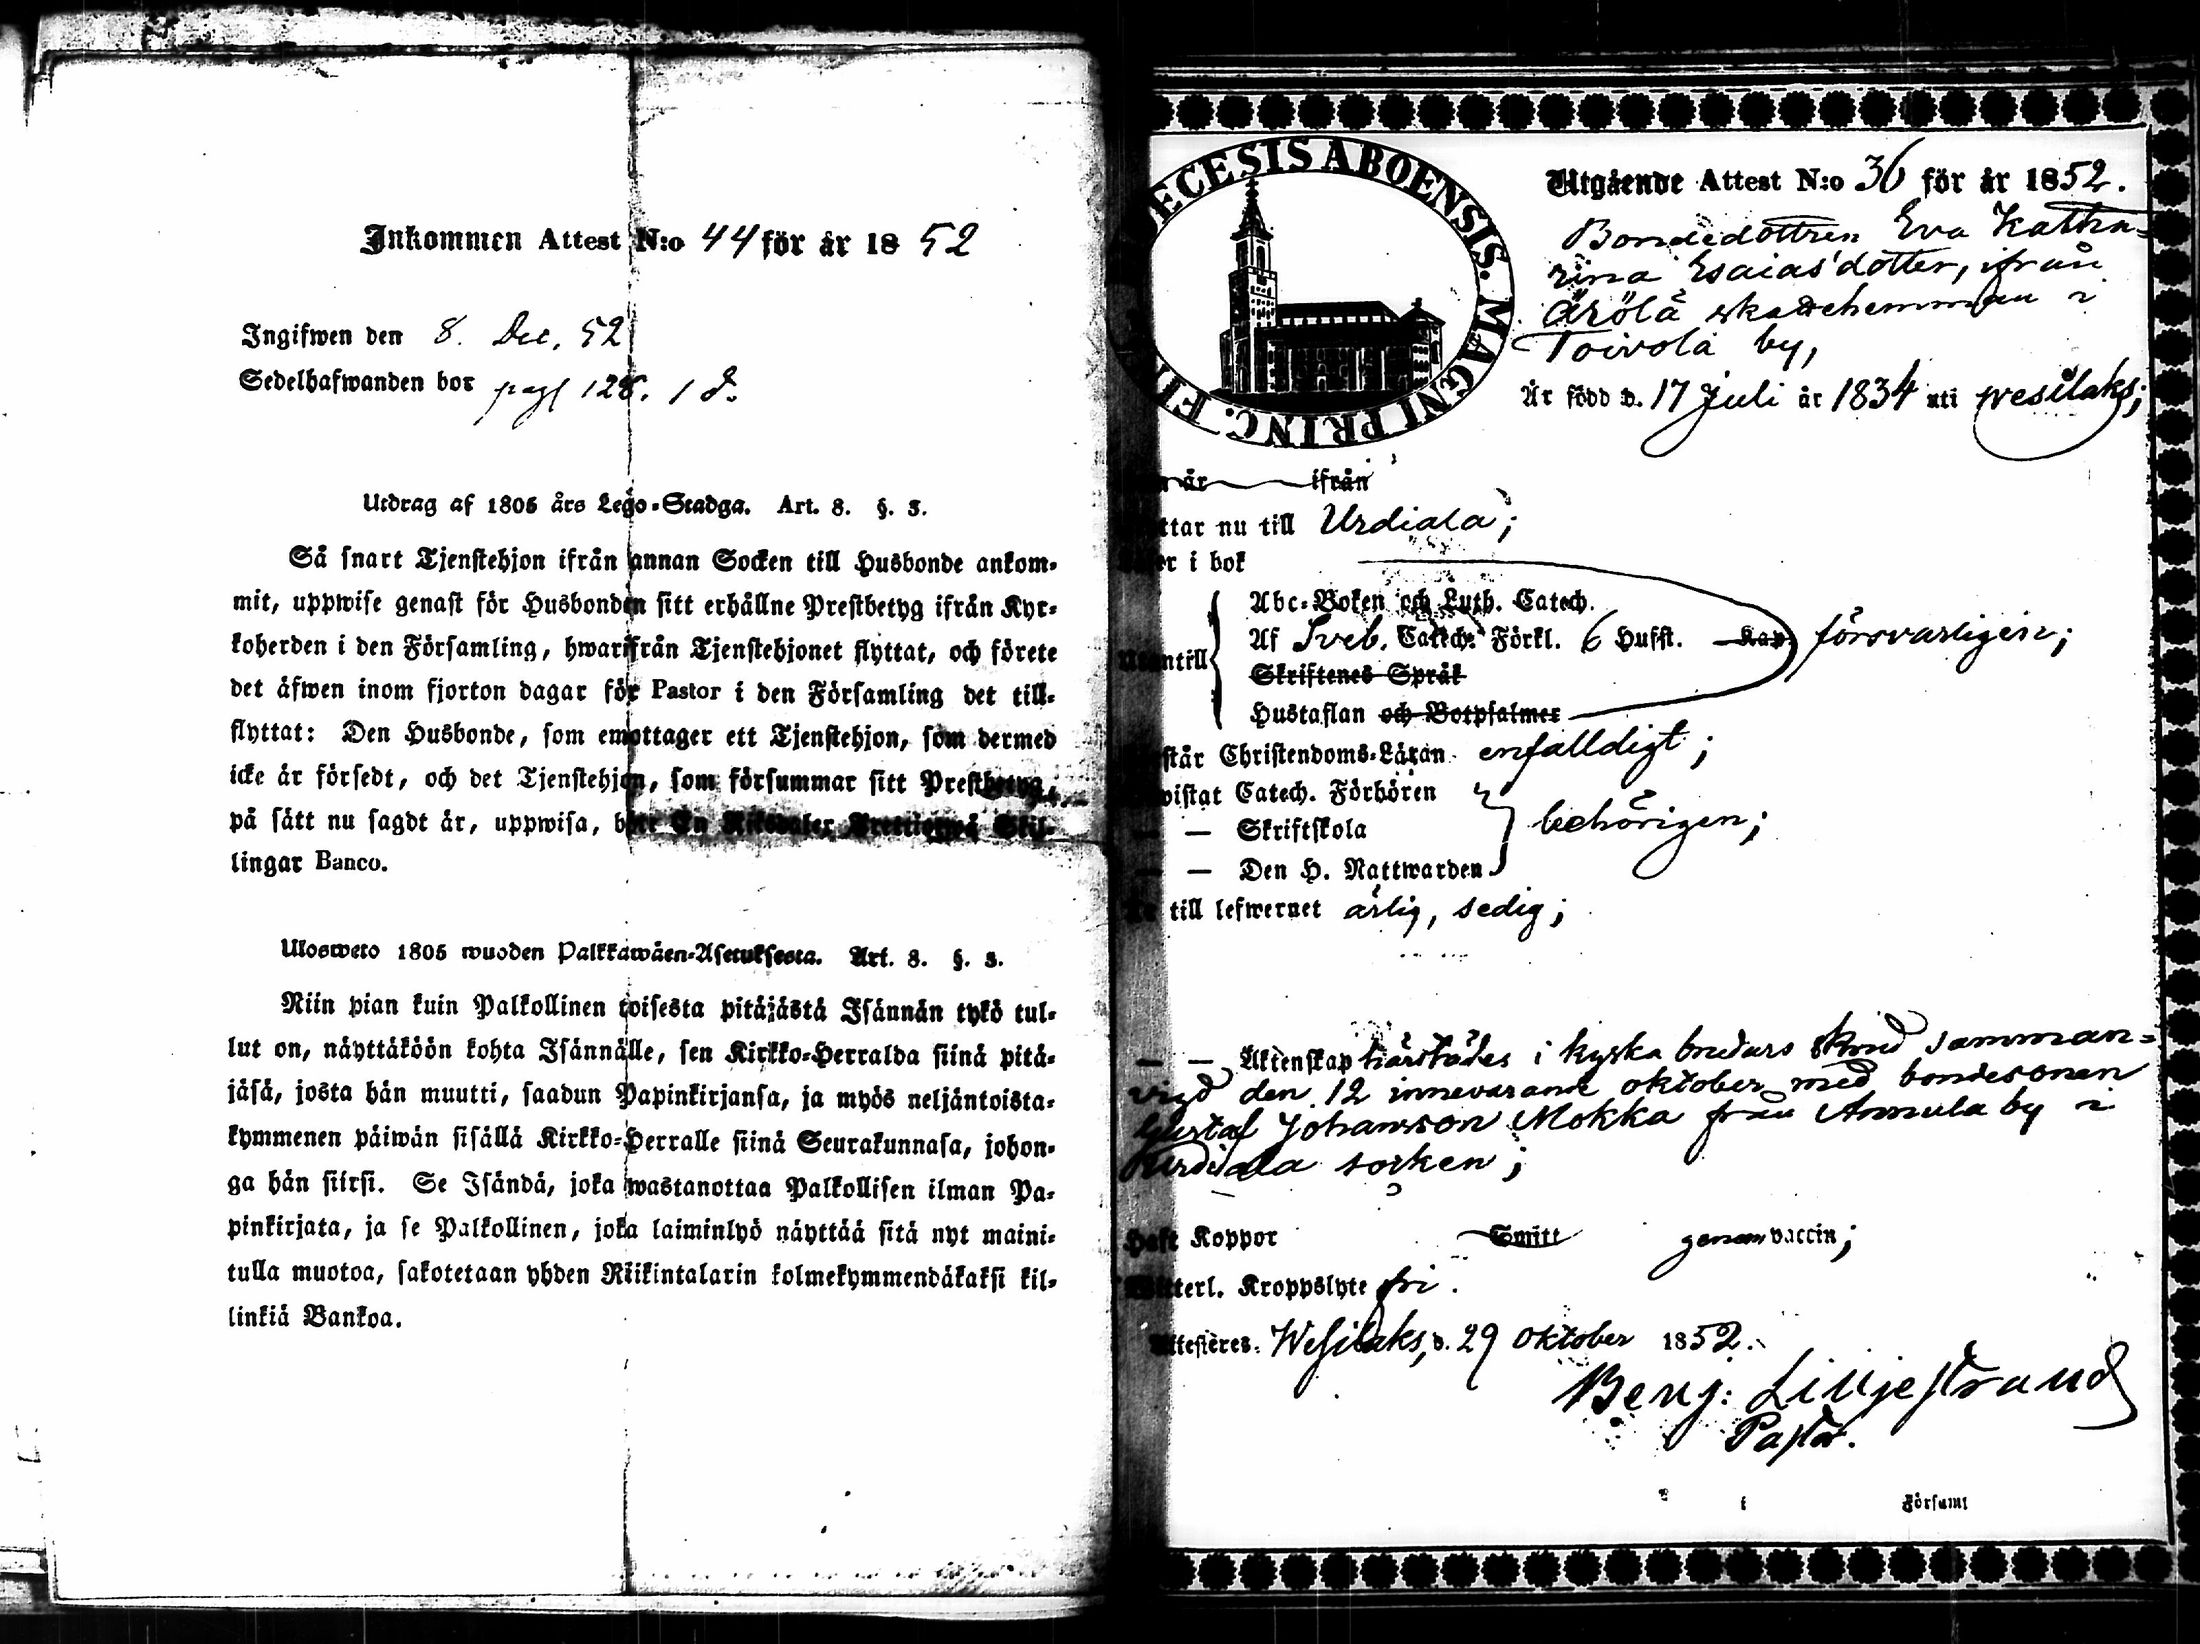 Inkommen Attest N:o 44 för år 18 52
Ingifwen den 8. Dec. 52
Sedelhafwanden bor pag 128. 1 d.
Utdrag af 1805 års Lego-Stadga. Art. 8. §. 3.
Så snart Tjenstehjon ifrån annan Socken till Husbonde ankom-
mit, uppwise genast för Husbonden sitt erhållne Prestbetyg ifrån Kyr-
koherden i den Församling, hwarifrån Tjenstehjonet flyttat, och förete
det äfwen inom fjorton dagar för Pastor i den Församling det till-
flyttat: Den Husbonde, som emottager ett Tjenstehjon, som dermed
icke är försedt, och det Tjenstehjon, som försummar sitt Prestbetyg,
på sätt nu sagdt är, uppwisa, böte En Riksdaler Trettiotwå Skil-
lingar Banco.
Ulosweto 1805 wuoden Palkkawäen-Asetuksesta. Art. 8. §. 3.
Niin pian kuin Palkollinen toisesta pitäjästä Isännän tykö tul-
lut on, näyttäköön kohta Isännälle, sen Kirkko-Herralda siinä pitä-
jäsä, josta hän muutti, saadun Papinkirjansa, ja myös neljäntoista-
kymmenen päiwän sisällä Kirkko-Herralle siinä Seurakunnasa, johon-
ga hän siirsi. Se Isändä, joka wastanottaa Palkollisen ilman Pa-
pinkirjata, ja se Palkollinen, joka laiminlyö näyttää sitä nyt maini-
tulla muotoa, sakotetaan yhden Riikintalarin kolmekymmendäkaksi kil-
linkiä Bankoa.
DECESIS ABOENSIS. MAGNI PRINC. FI
Utgående Attest N:o 36 för år 1852.
Bondedottren Eva Katha-
rina Esaiasdotter, ifrån
Ärölä skattehemman i
Toivola by,
Är född d. 17 Juli år 1834 uti Wesilaks;
är ifrån
ttar nu till Urdiala;
er i bok
Abc-Boken och Luth. Catech.
Af Sveb. Catech. Förkl. 6 Hufst. Kap. försvarligen;
Utantill
Skriftenes Språk
Hustaflan och Botpsalmer
står Christendoms-Läran enfalldigt;
wistat Catech. Förhören
— — Skriftskola behörigen;
— — Den H. Nattwarden
till lefwernet ärlig, sedig;
— — Äktenskap härstädes i kyska brudars stånd samman-
vigd den 12 innevarande oktober med bondesonen
Gustaf Johansson Mokka från Annula by i
Urdiala socken;
Haft Koppor Smitt genom vaccin;
Witterl. Kroppslyte fri.
Attesteres. Wesilaks, d. 29 oktober 1852.
Benj: Liljestrand
Pastor.
i Församl